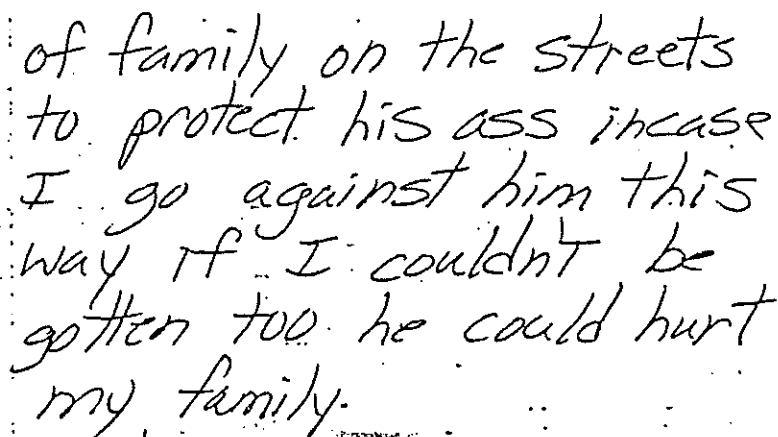 of family on the streets
to protect his ass incase
I go against him this
way if I couldn't be
gotten too he could hurt
my family.